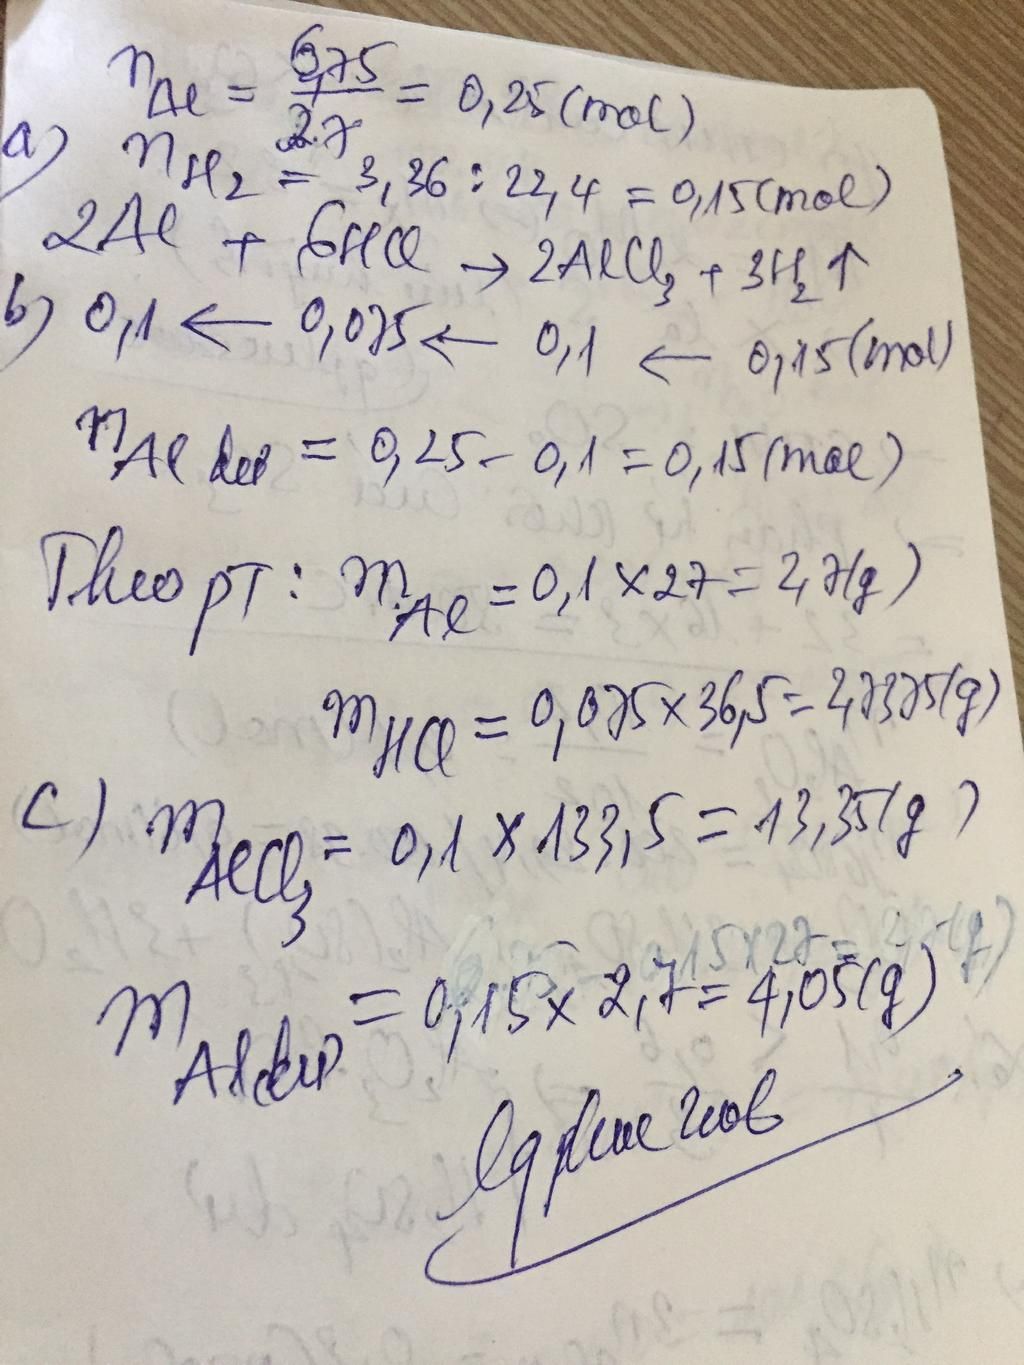 n Al = 6,75 / 27 = 0,25 (mol)
a) n H2 = 3,36 : 22,4 = 0,15 (mol)
2Al + 6HCl → 2AlCl3 + 3H2 ↑
b) 0,1 ← 0,075 ← 0,1 ← 0,15 (mol)
n Al dư = 0,25 - 0,1 = 0,15 (mol)
Theo PT : m Al = 0,1 × 27 = 2,7 (g)
m HCl = 0,075 × 36,5 = 2,7375 (g)
c) m AlCl3 = 0,1 × 133,5 = 13,35 (g)
m Al dư = 0,15 × 2,7 = 4,05 (g)